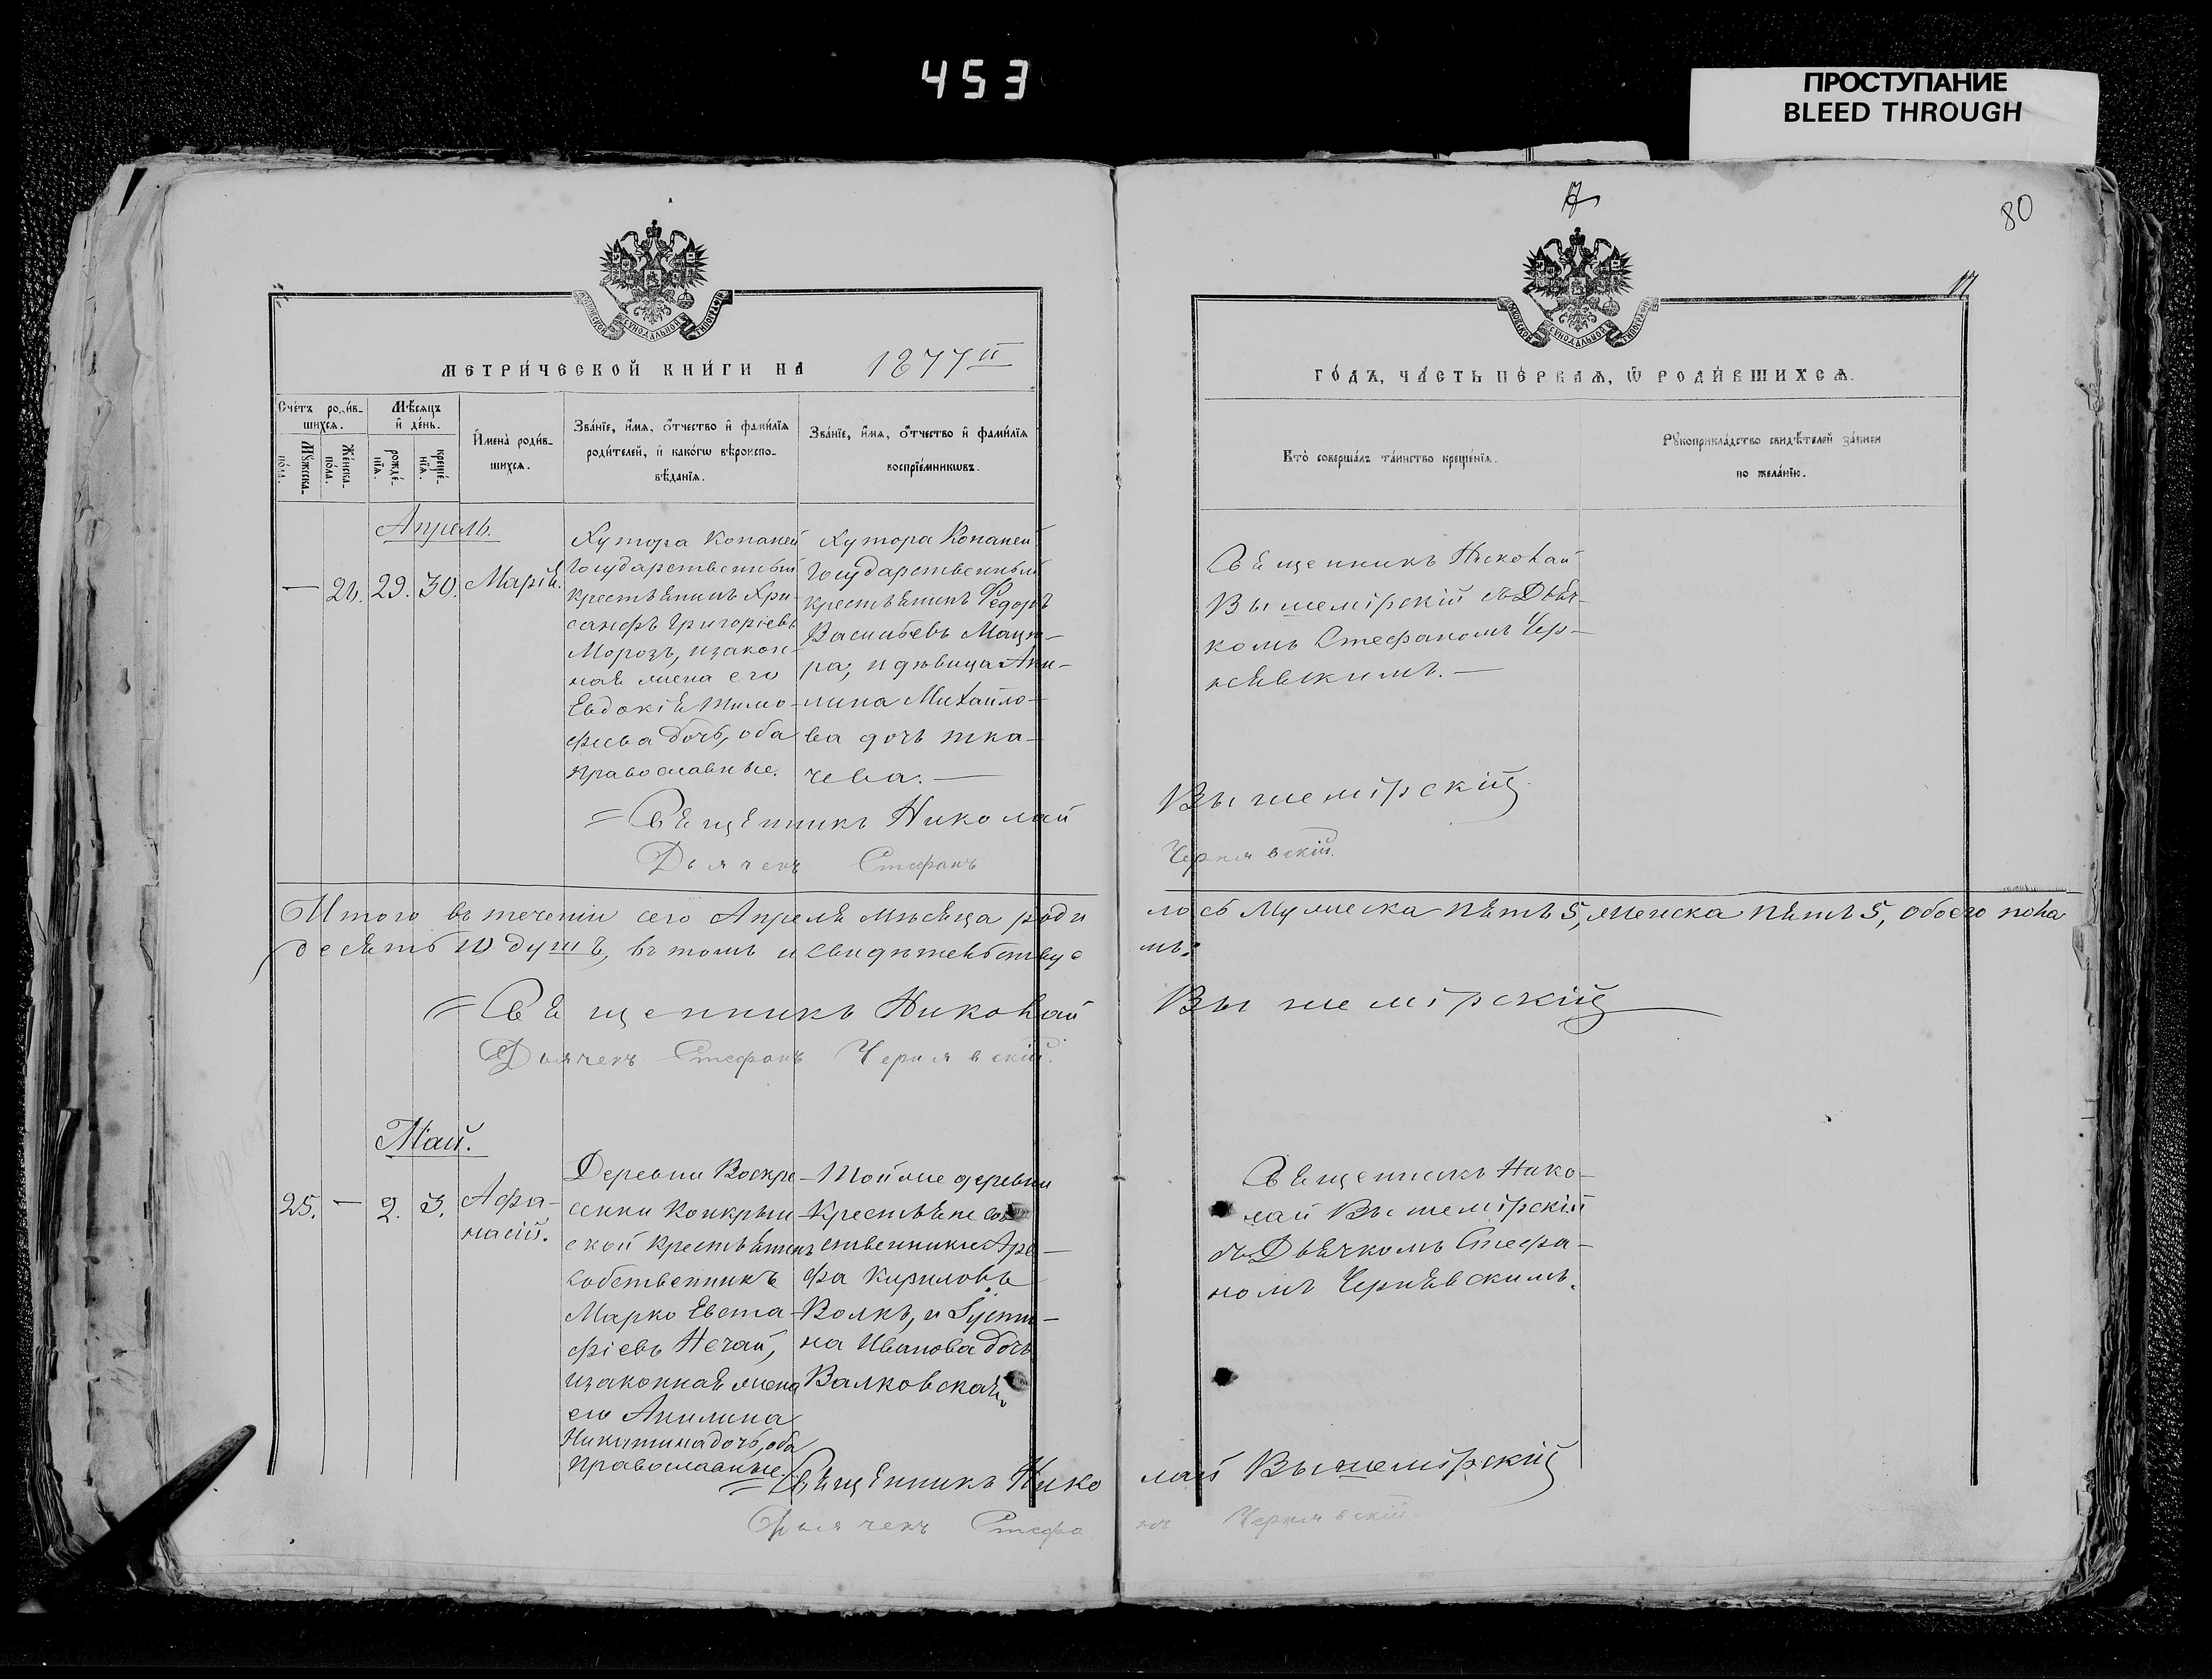 453
ПРОСТУПАНИЕ
BLEED THROUGH
17
80
МЕТРИ́ЧЕСКОЙ КНИ́ГИ НА 1877й
ГО́ДЪ, ЧА́СТЬ ПЕ́РВАЯ, Ѡ РОДИ́ВШИХСЯ.
Сче́тъ роди́в-
шихся.
Мꙋ́жеска
по́ла.
Же́нска
по́ла.
Мѣ́сяцъ
и де́нь.
рожде́-
нїя.
креще́-
нїя.
Имена̀ роди́в-
шихся.
Зва́нїе, и́мя, о́тчество и фами́лїя
роди́телей, и како́гѡ вѣроиспо-
вѣ́данїя.
Зва́нїе, и́мя, о́тчество и фами́лїя
воспрїе́мникѡвъ.
Кто̀ соверша́лъ та́инство креще́нїя.
Рꙋкоприкла́дство свидѣ́телей за́писи
по жела́нїю.
Апрель.
— 20. 29. 30. Марія.
Хутора Копаней
Государственный
крестьянинъ Хри-
санфъ Григоріевъ
Морозъ, изакон-
ная жена его
Евдокія Тимо-
феева дочь, оба
православные.
Хутора Копаней
Государственный
крестьянинъ Федоръ
Васильевъ Мацю-
ра, и девица Аки-
лина Михайло-
ва дочь тка-
чева. —
Священникъ Николай
Вышемірскій съ Дьяч-
комъ Стефаномъ Чер-
нявскимъ. —
= Священникъ Николай Вышемірскій
Дьячекъ Стефанъ Чернявскій.
Итого въ теченіи сего Апреля месяца родилось Мужеска пять 5, женска пять 5, обоего пола
десять 10 душъ, въ томъ и свидетельствуемъ:
= Священникъ Николай Вышемірскій
Дьячекъ Стефанъ Чернявскій.
Май.
25. — 2. 3. Афа-
насій.
Деревни Воскре-
сенки
крестьянинъ
собственникъ
Марко Евста-
фіевъ Нечай,
изаконная жена
его Акилина
Никитина дочь, оба
православные.
Той же деревни
Крестьяне соб
ственники Аре-
фа Кириловъ
Волкъ, и Іусти-
на Иванова дочь
Валковская.
Священникъ Нико-
лай Вышемірскій
съ Дьячкомъ Стефа-
номъ Чернявскимъ.
= Священникъ Николай Вышемірскій
Дьячекъ Стефанъ Чернявскій